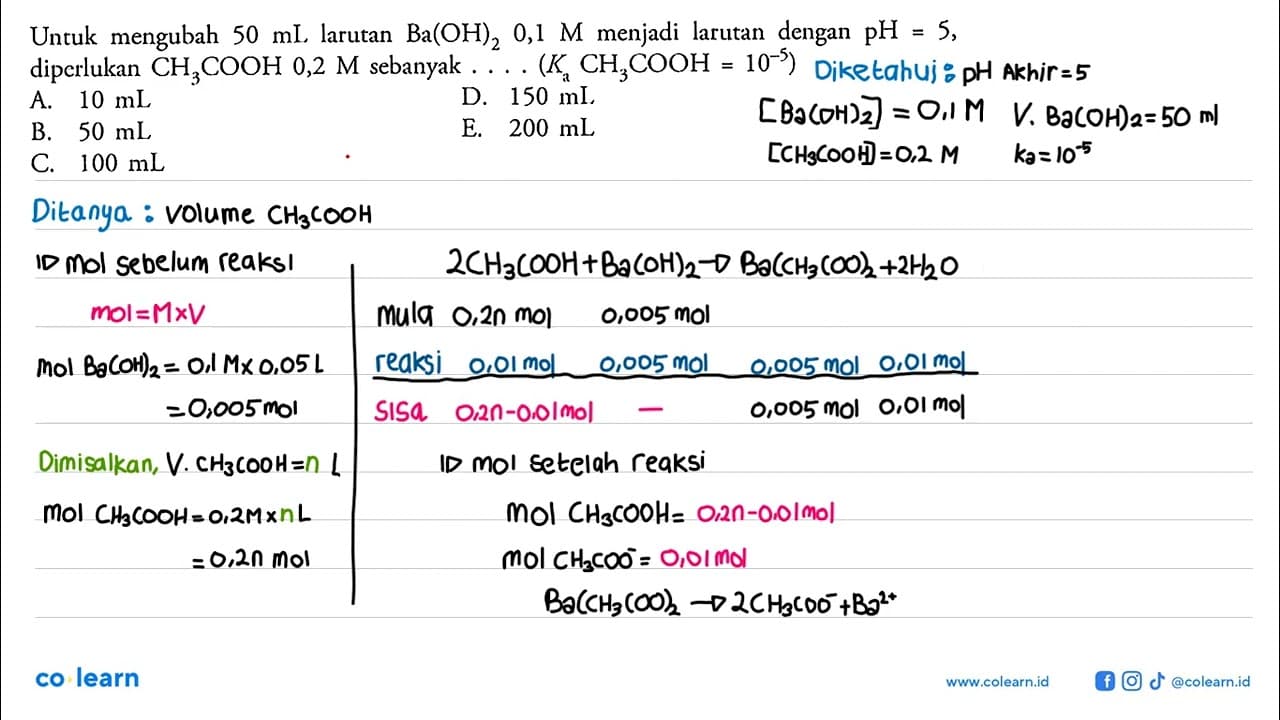 Untuk mengubah 50 mL larutan Ba(OH)₂ 0,1 M menjadi larutan dengan pH = 5,
diperlukan CH₃COOH 0,2 M sebanyak . . . . (Kₐ CH₃COOH = 10⁻⁵)
A. 10 mL
B. 50 mL
C. 100 mL
D. 150 mL
E. 200 mL
Diketahui : pH Akhir = 5
[Ba(OH)₂] = 0,1 M V. Ba(OH)₂ = 50 ml
[CH₃COOH] = 0,2 M ka = 10⁻⁵
Ditanya : volume CH₃COOH
▷ mol sebelum reaksi
mol = M × V
mol Ba(OH)₂ = 0,1 M × 0,05 L
= 0,005 mol
Dimisalkan, V. CH₃COOH = n L
mol CH₃COOH = 0,2 M × n L
= 0,2n mol
2CH₃COOH + Ba(OH)₂ → Ba(CH₃COO)₂ + 2H₂O
mula 0,2n mol 0,005 mol
reaksi 0,01 mol 0,005 mol 0,005 mol 0,01 mol
sisa 0,2n-0,01 mol — 0,005 mol 0,01 mol
▷ mol setelah reaksi
mol CH₃COOH = 0,2n-0,01 mol
mol CH₃COO⁻ = 0,01 mol
Ba(CH₃COO)₂ → 2CH₃COO⁻ + Ba²⁺
co learn
www.colearn.id @colearn.id